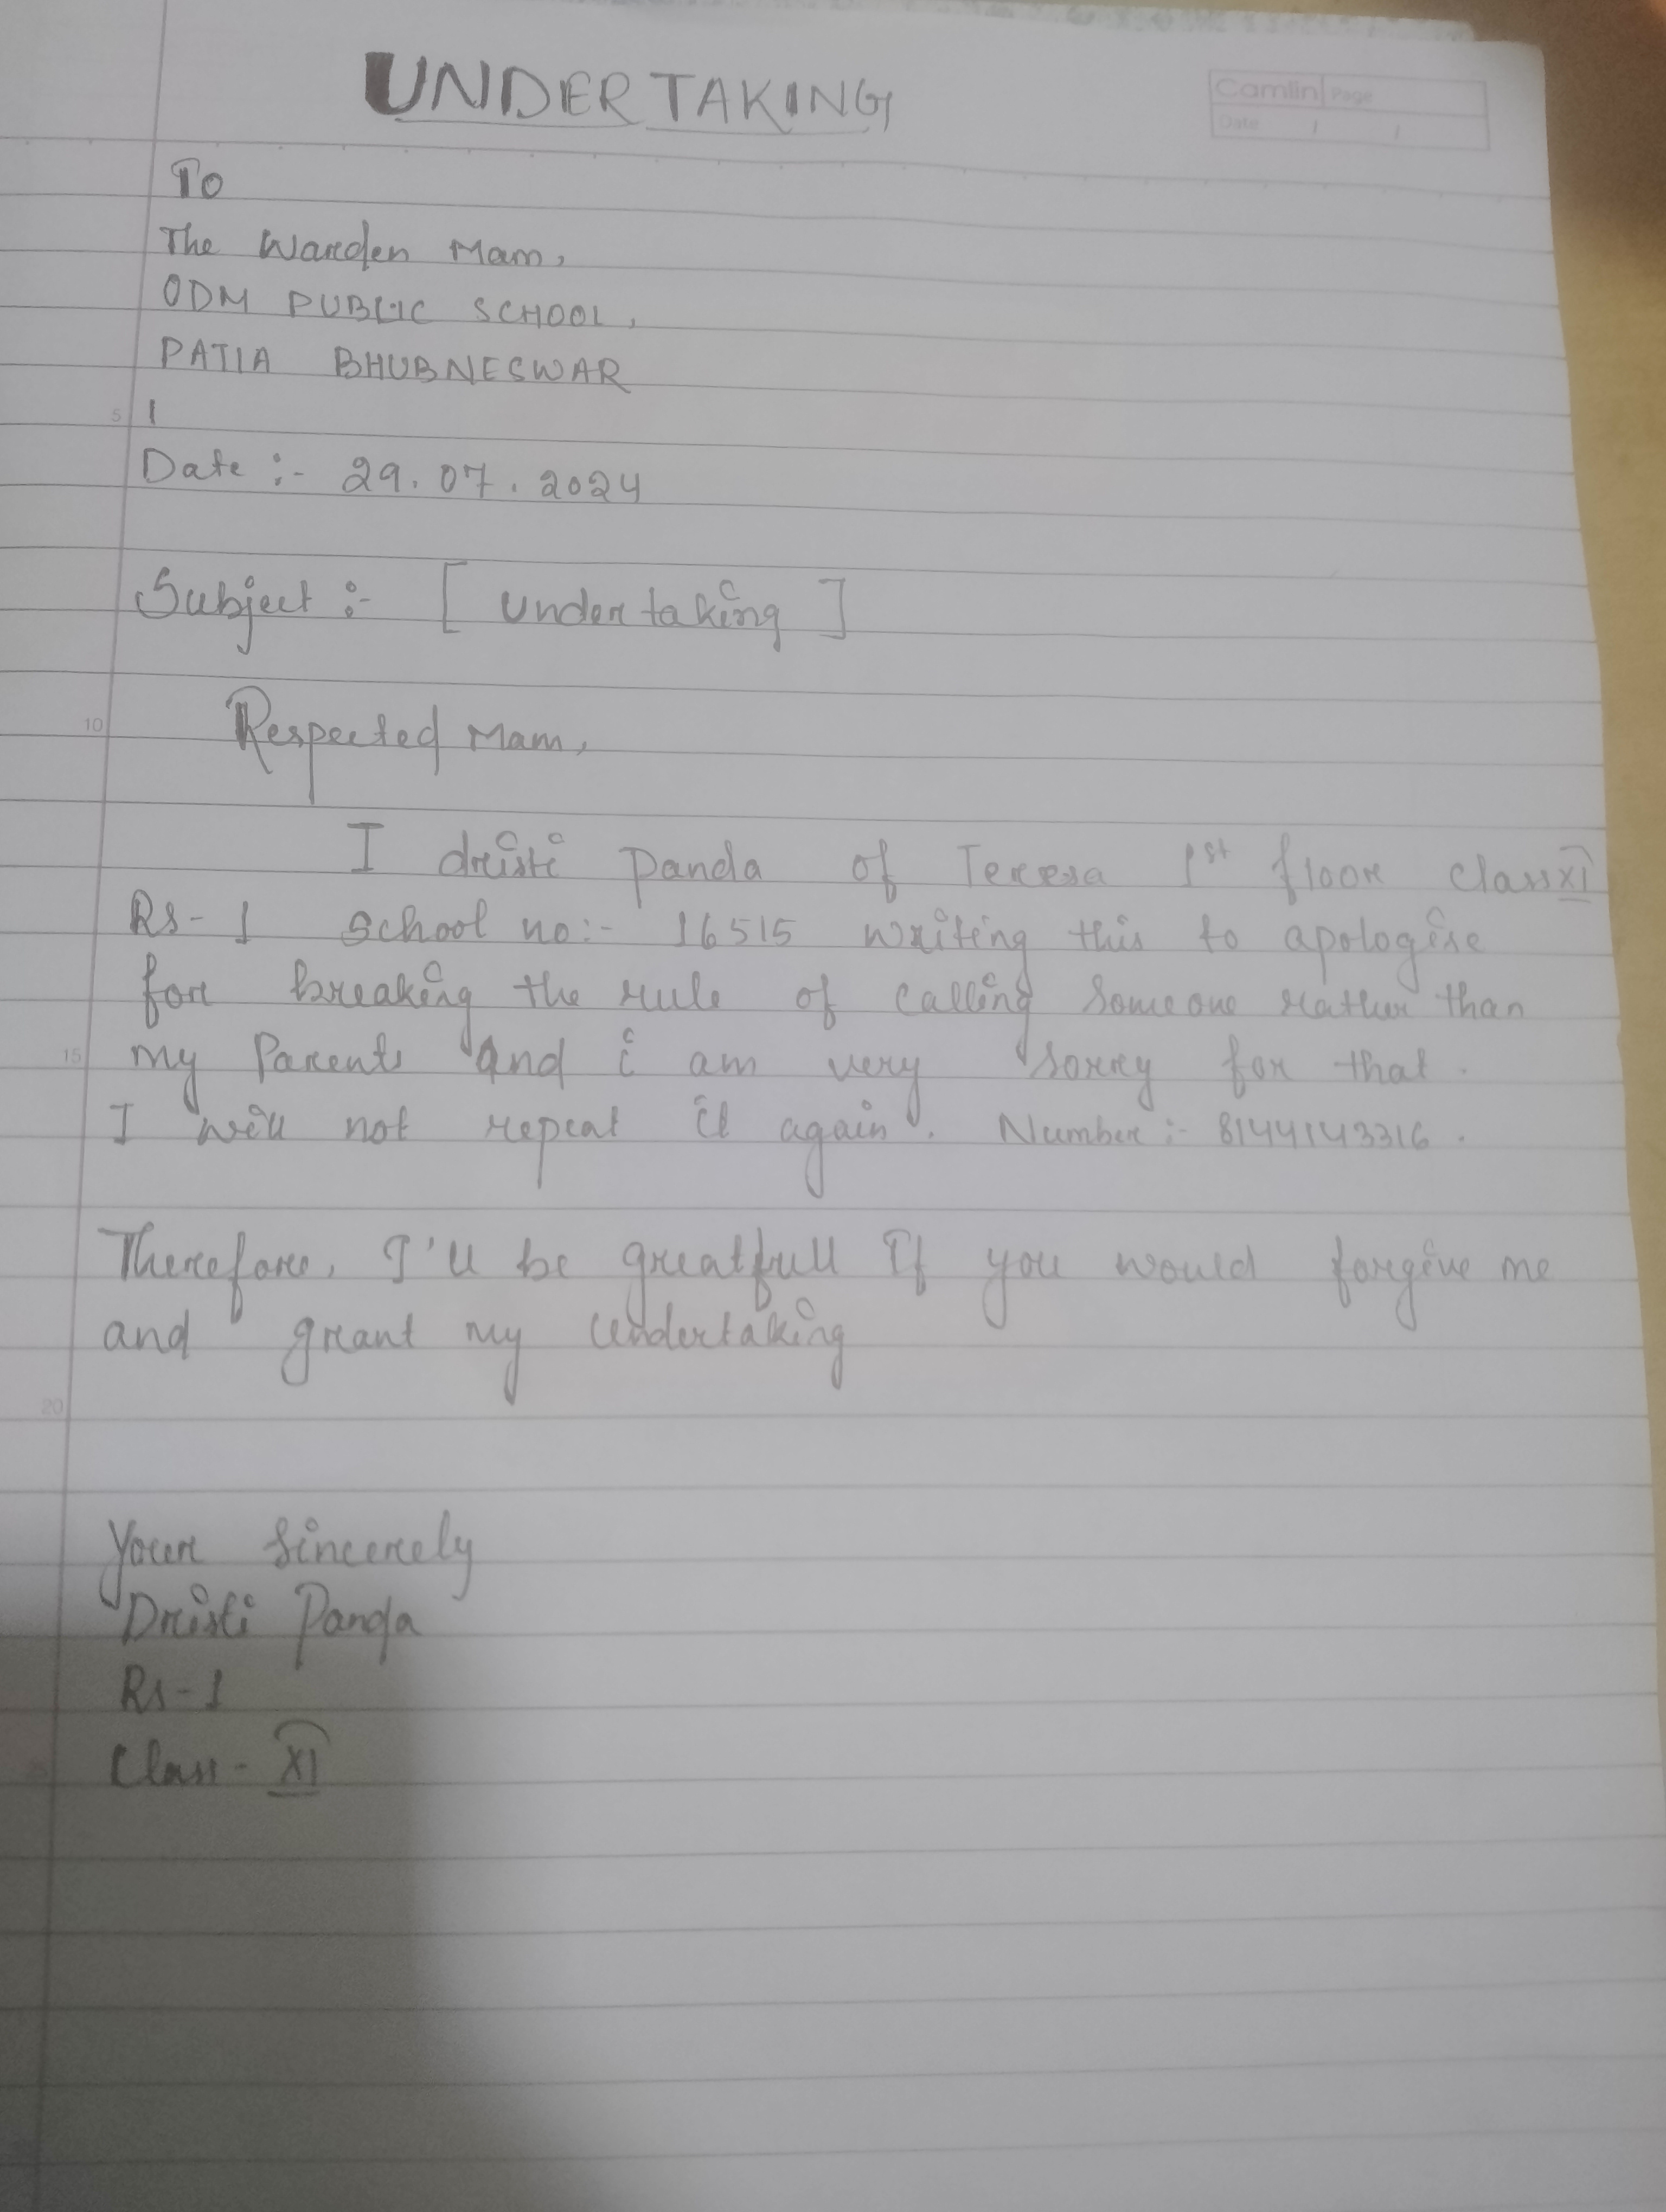 UNDERTAKING
Camlin Page
Date / /
To
The Warden Mam,
ODM PUBLIC SCHOOL,
PATIA BHUBNESWAR
5
Date :- 29.07.2024
Subject :- [ Undertaking ]
10
Respected Mam,
I dristi Panda of Teresa 1st floor class XI
Rs-1 School no:- 16515 writing this to apologise
for breaking the rule of calling someone rather than
15 my Parents and i am very sorry for that.
I will not repeat it again. Number :- 8144143316.
Therefore, I'll be greatfull If you would forgive me
and grant my Undertaking
20
Your Sincerely
Dristi Panda
Rs-1
Class - XI